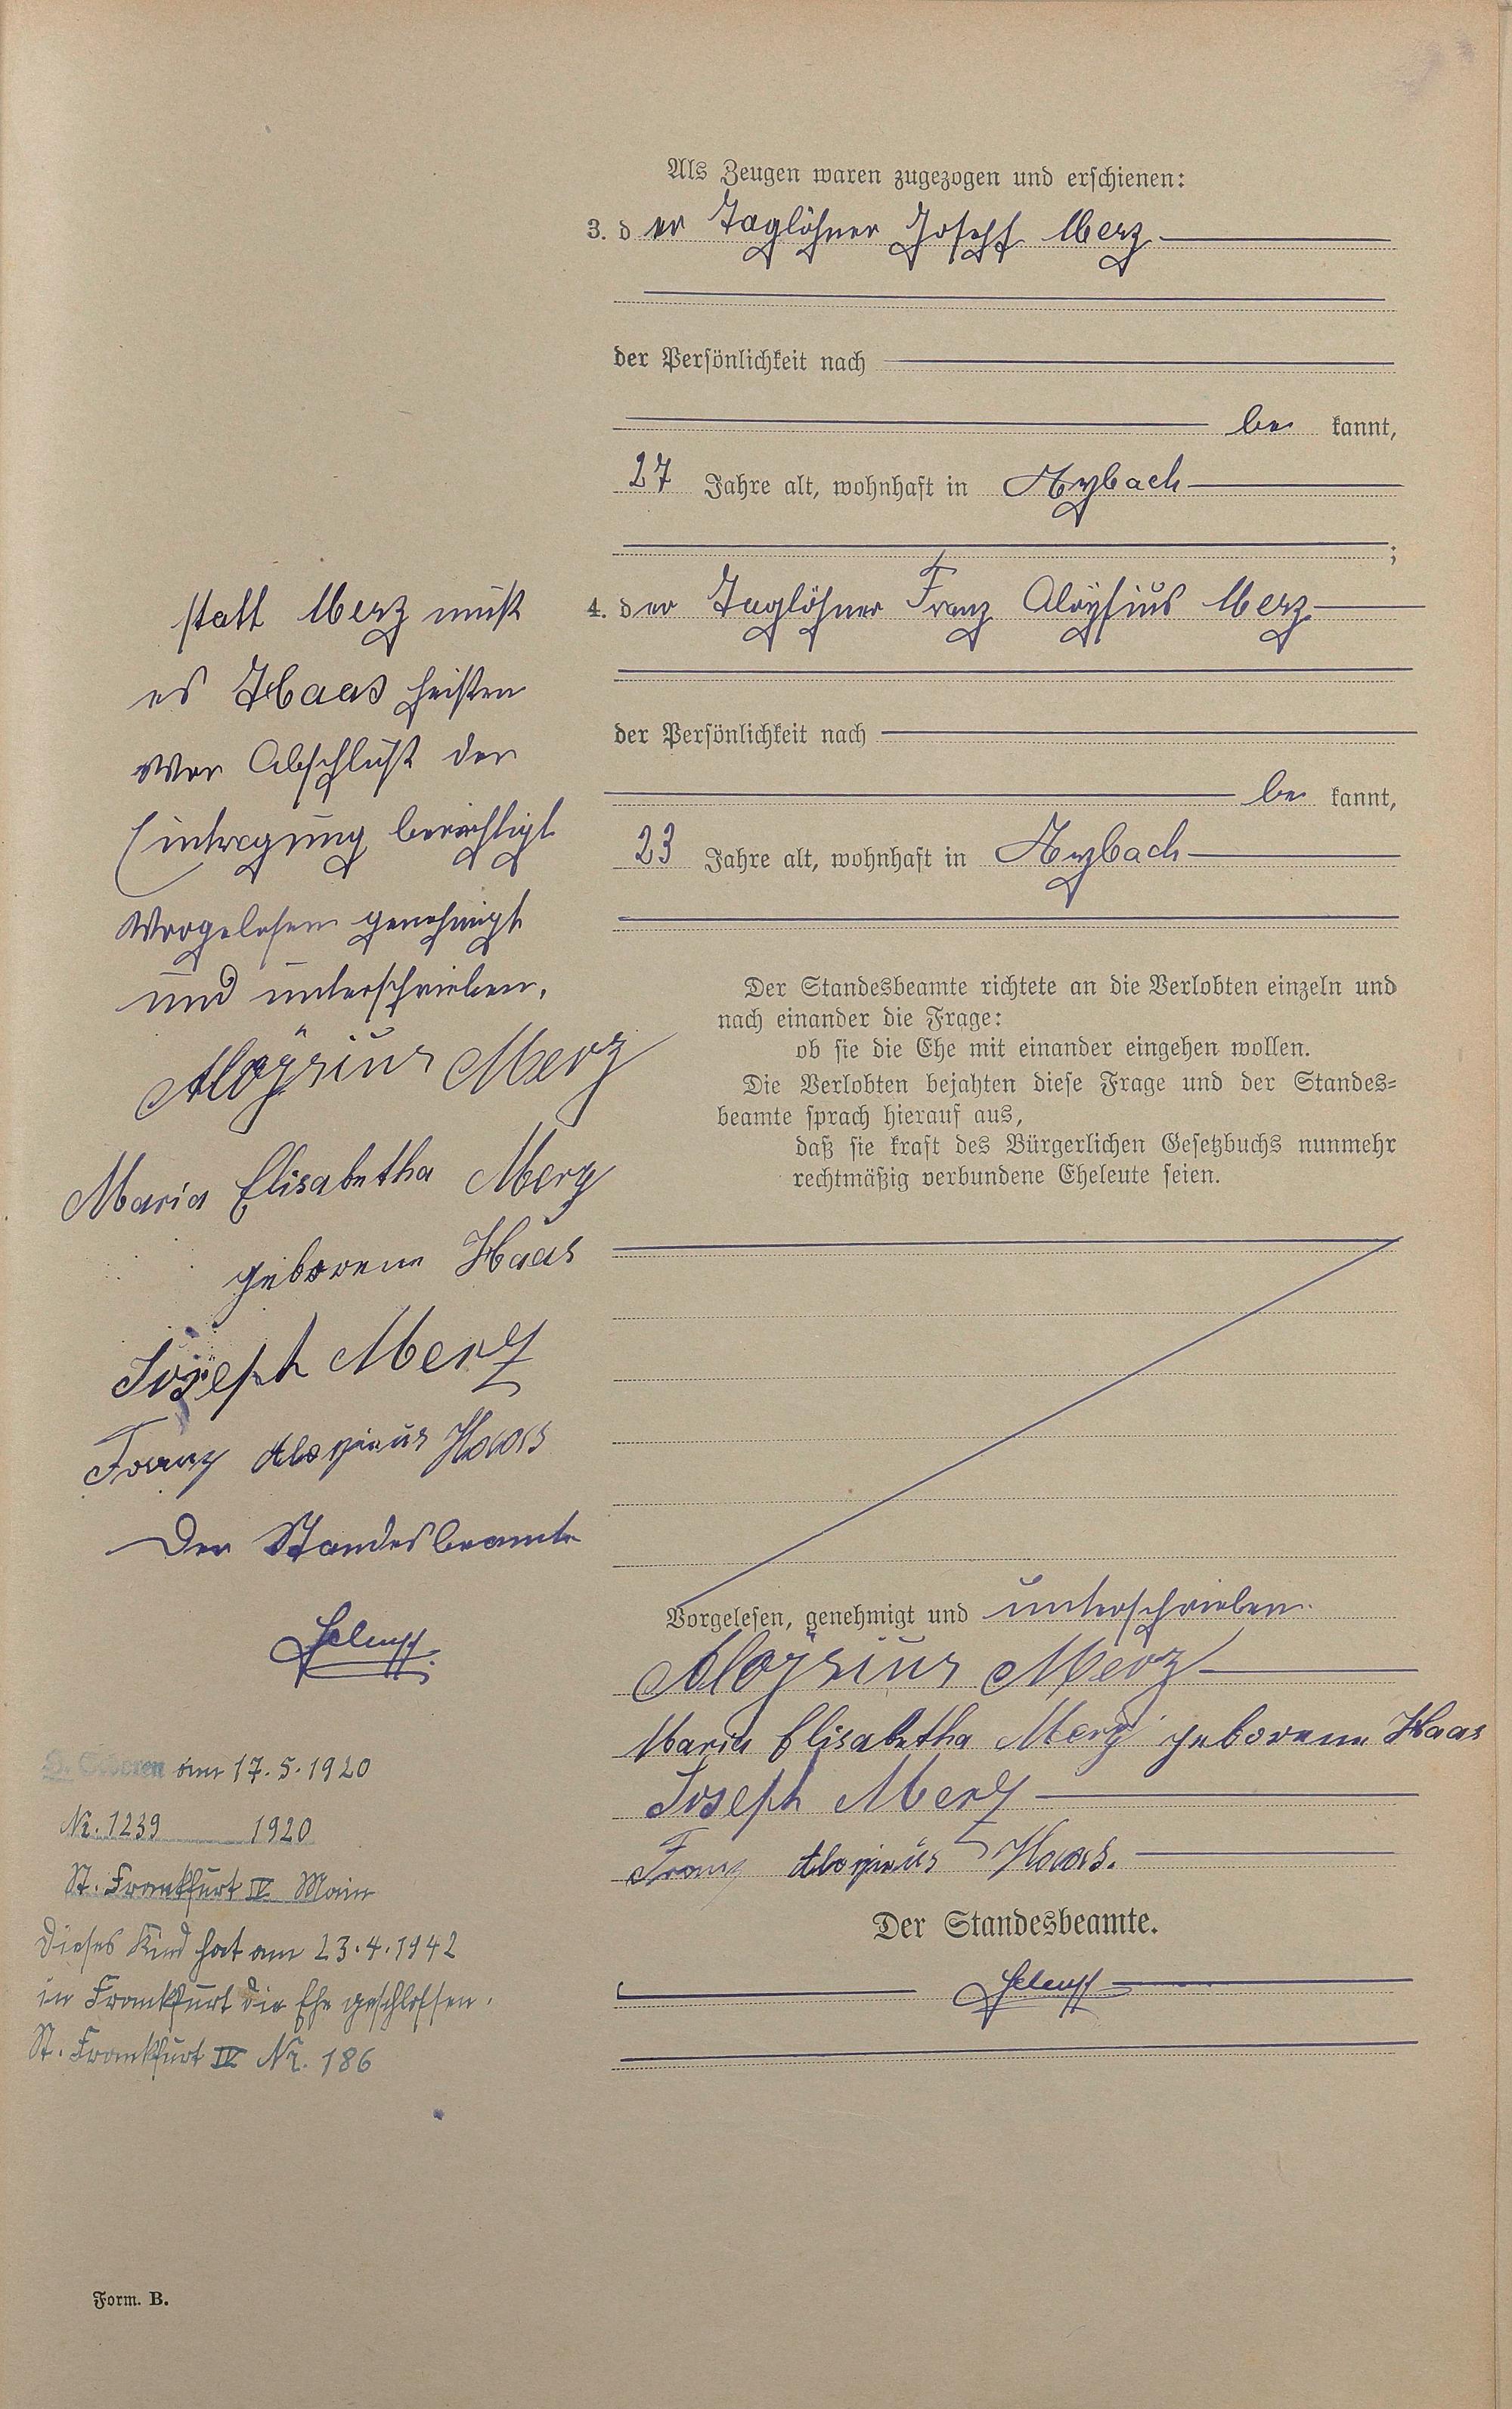 Als Zeugen waren zugezogen und erschienen:
3. der Taglöhner Joseph Merz
der Persönlichkeit nach
be kannt,
27 Jahre alt, wohnhaft in Aybach
;
4. der Taglöhner Franz Aloysius Merz
der Persönlichkeit nach
be kannt,
23 Jahre alt, wohnhaft in Aybach
Der Standesbeamte richtete an die Verlobten einzeln und
nach einander die Frage:
ob sie die Ehe mit einander eingehen wollen.
Die Verlobten bejahten diese Frage und der Standes-
beamte sprach hierauf aus,
daß sie kraft des Bürgerlichen Gesetzbuchs nunmehr
rechtmäßig verbundene Eheleute seien.
Vorgelesen, genehmigt und unterschrieben.
Aloÿsius Merz
Maria Elisabetha Merz geborene Haas
Joseph Merz
Franz Aloysius Haas.
Der Standesbeamte.
statt Merz muß
es Haas heißen
Vor Abschluß der
Eintragung berichtigt
Vorgelesen genehmigt
und unterschrieben.
Aloÿsius Merz
Maria Elisabetha Merz
geborene Haas
Joseph Merz
Franz Aloysius Haas
Der Standesbeamte
Geboren am 17.5.1920
Nr. 1239 1920
St. Frankfurt IV Main
Dieses Kind hat am 23.4.1942
in Frankfurt die Ehe geschlossen.
St. Frankfurt IV Nr. 186
Form. B.